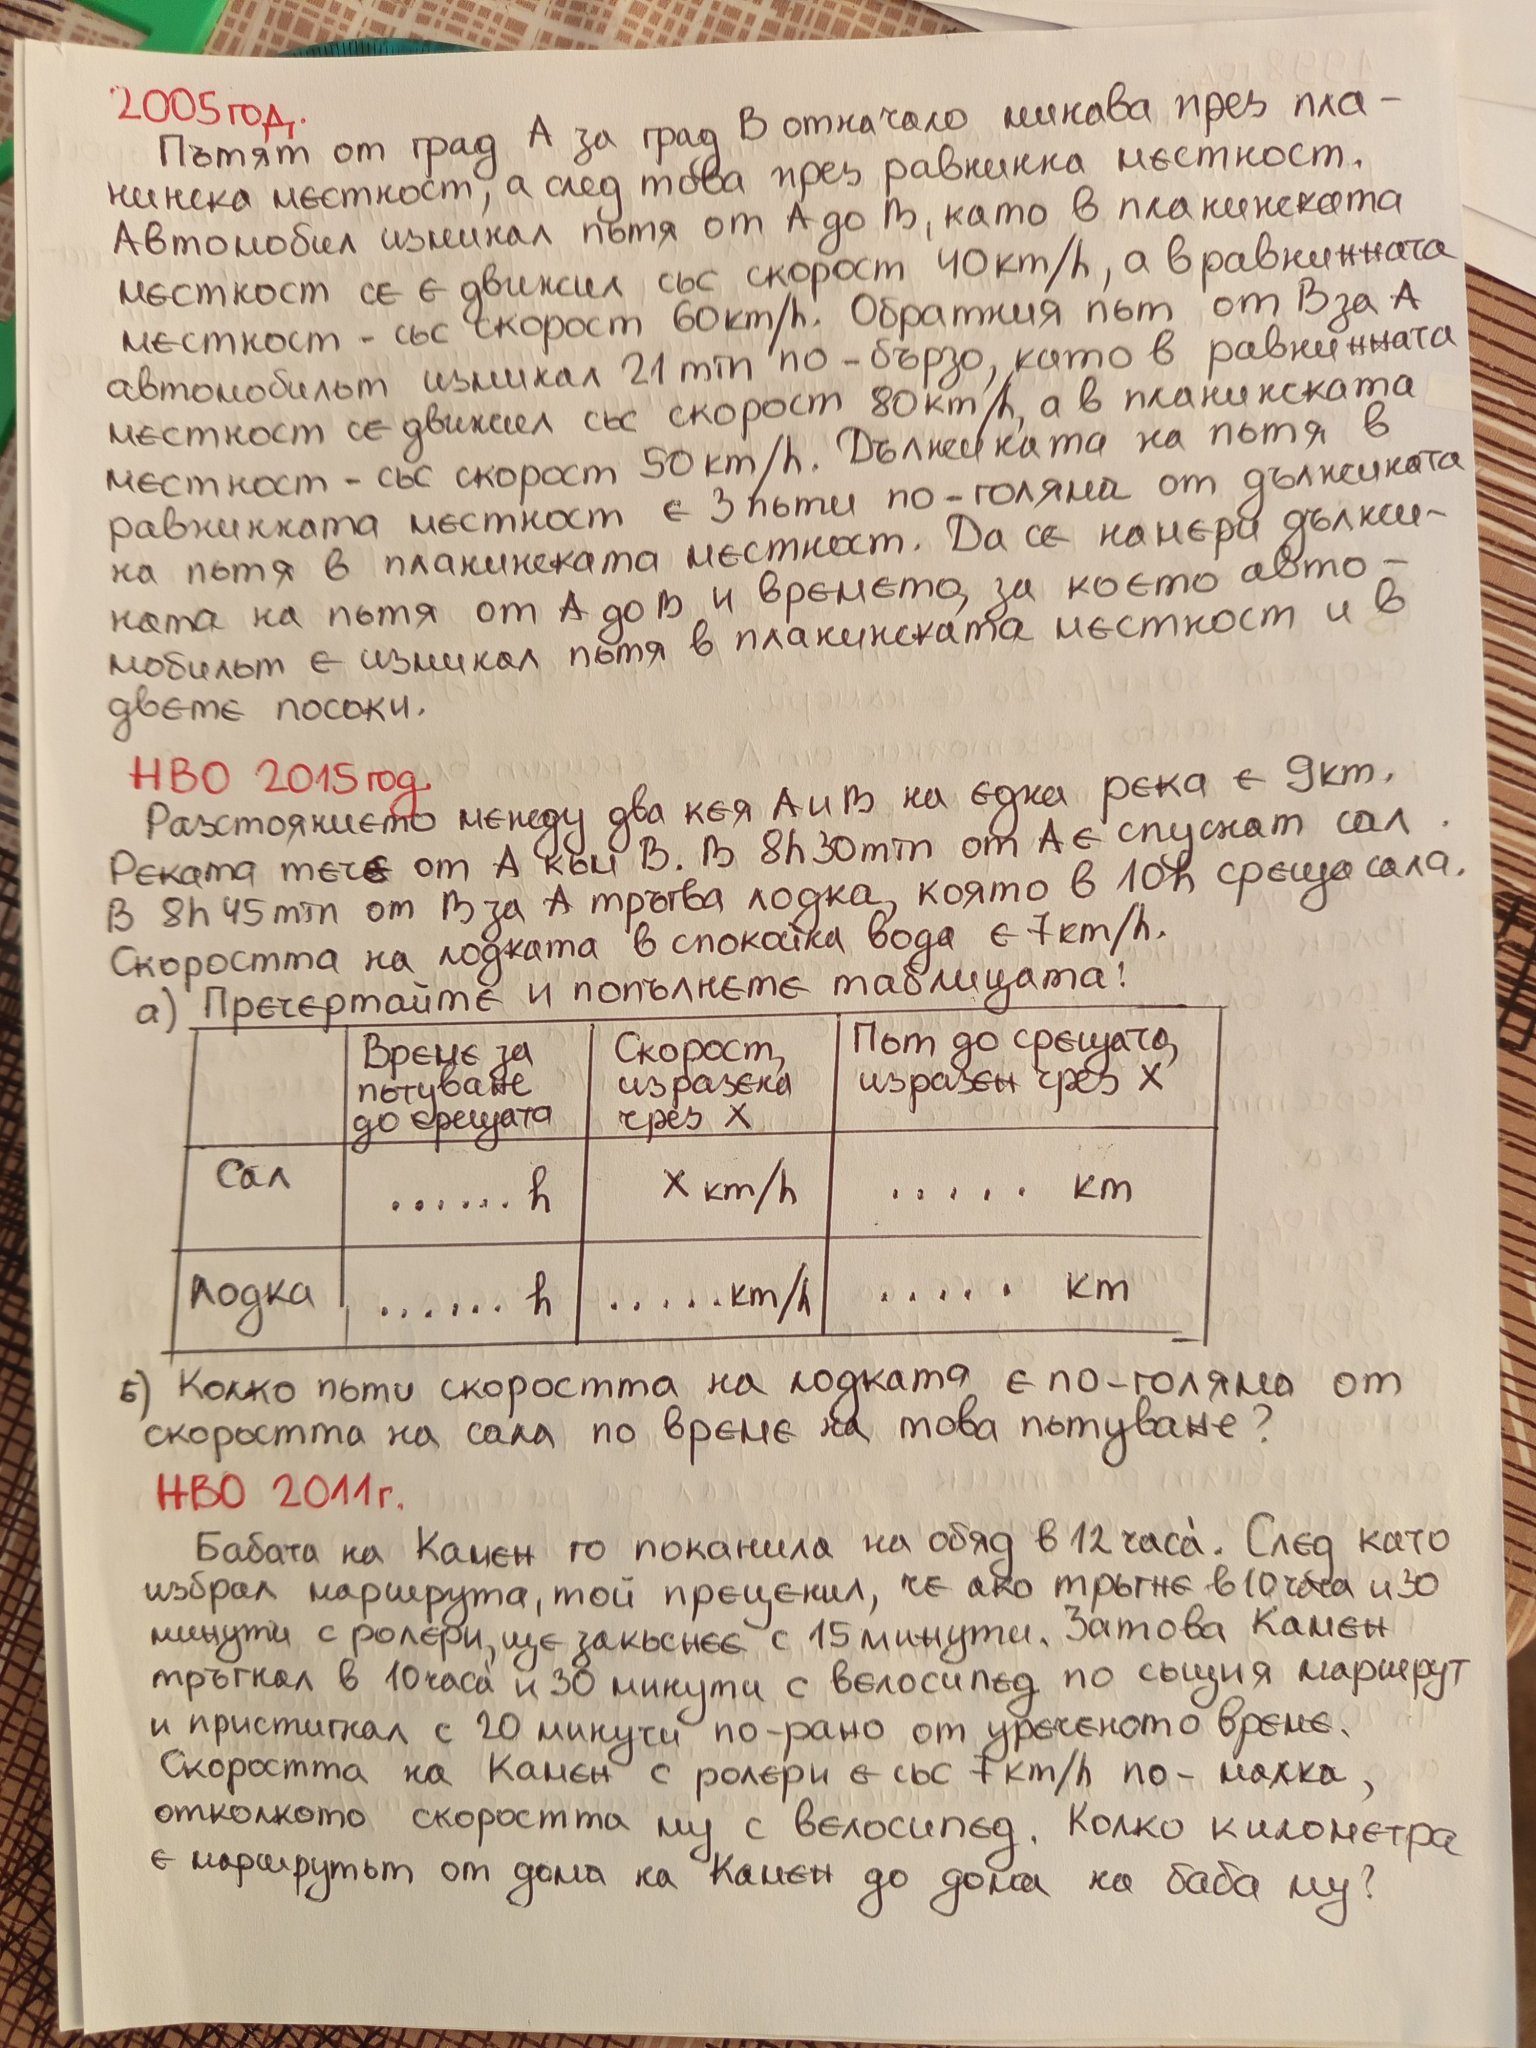 2005 год.
Пътят от град А за град В отначало минава през пла-
нинска местност, а след това през равнинна местност.
Автомобил изминал пътя от А до В, като в планинската
местност се е движил със скорост 40 km/h, а в равнинната
местност - със скорост 60 km/h. Обратния път от В за А
автомобилът изминал 21 min по-бързо, като в равнинната
местност се движил със скорост 80 km/h, а в планинската
местност - със скорост 50 km/h. Дължината на пътя в
равнинната местност е 3 пъти по-голяма от дължината
на пътя в планинската местност. Да се намери дължи-
ната на пътя от А до В и времето, за което авто-
мобилът е изминал пътя в планинската местност и в
двете посоки.
НВО 2015 год.
Разстоянието между два кея А и В на една река е 9 km.
Реката тече от А към В. В 8h 30 min от А е спуснат сал.
В 8h 45 min от В за А тръгва лодка, която в 10h среща сала.
Скоростта на лодката в спокойна вода е 7 km/h.
а) Пречертайте и попълнете таблицата!
Време за пътуване до срещата
Скорост, изразена чрез х
Път до срещата, изразен чрез х
Сал ...... h х km/h ..... km
Лодка ...... h ..... km/h ..... km
б) Колко пъти скоростта на лодката е по-голяма от
скоростта на сала по време на това пътуване?
НВО 2011 г.
Бабата на Камен го поканила на обяд в 12 часа. След като
избрал маршрута, той преценил, че ако тръгне в 10 часа и 30
минути с ролери, ще закъснее с 15 минути. Затова Камен
тръгнал в 10 часа и 30 минути с велосипед по същия маршрут
и пристигнал с 20 минути по-рано от уреченото време.
Скоростта на Камен с ролери е със 7 km/h по-малка,
отколкото скоростта му с велосипед. Колко километра
е маршрутът от дома на Камен до дома на баба му?